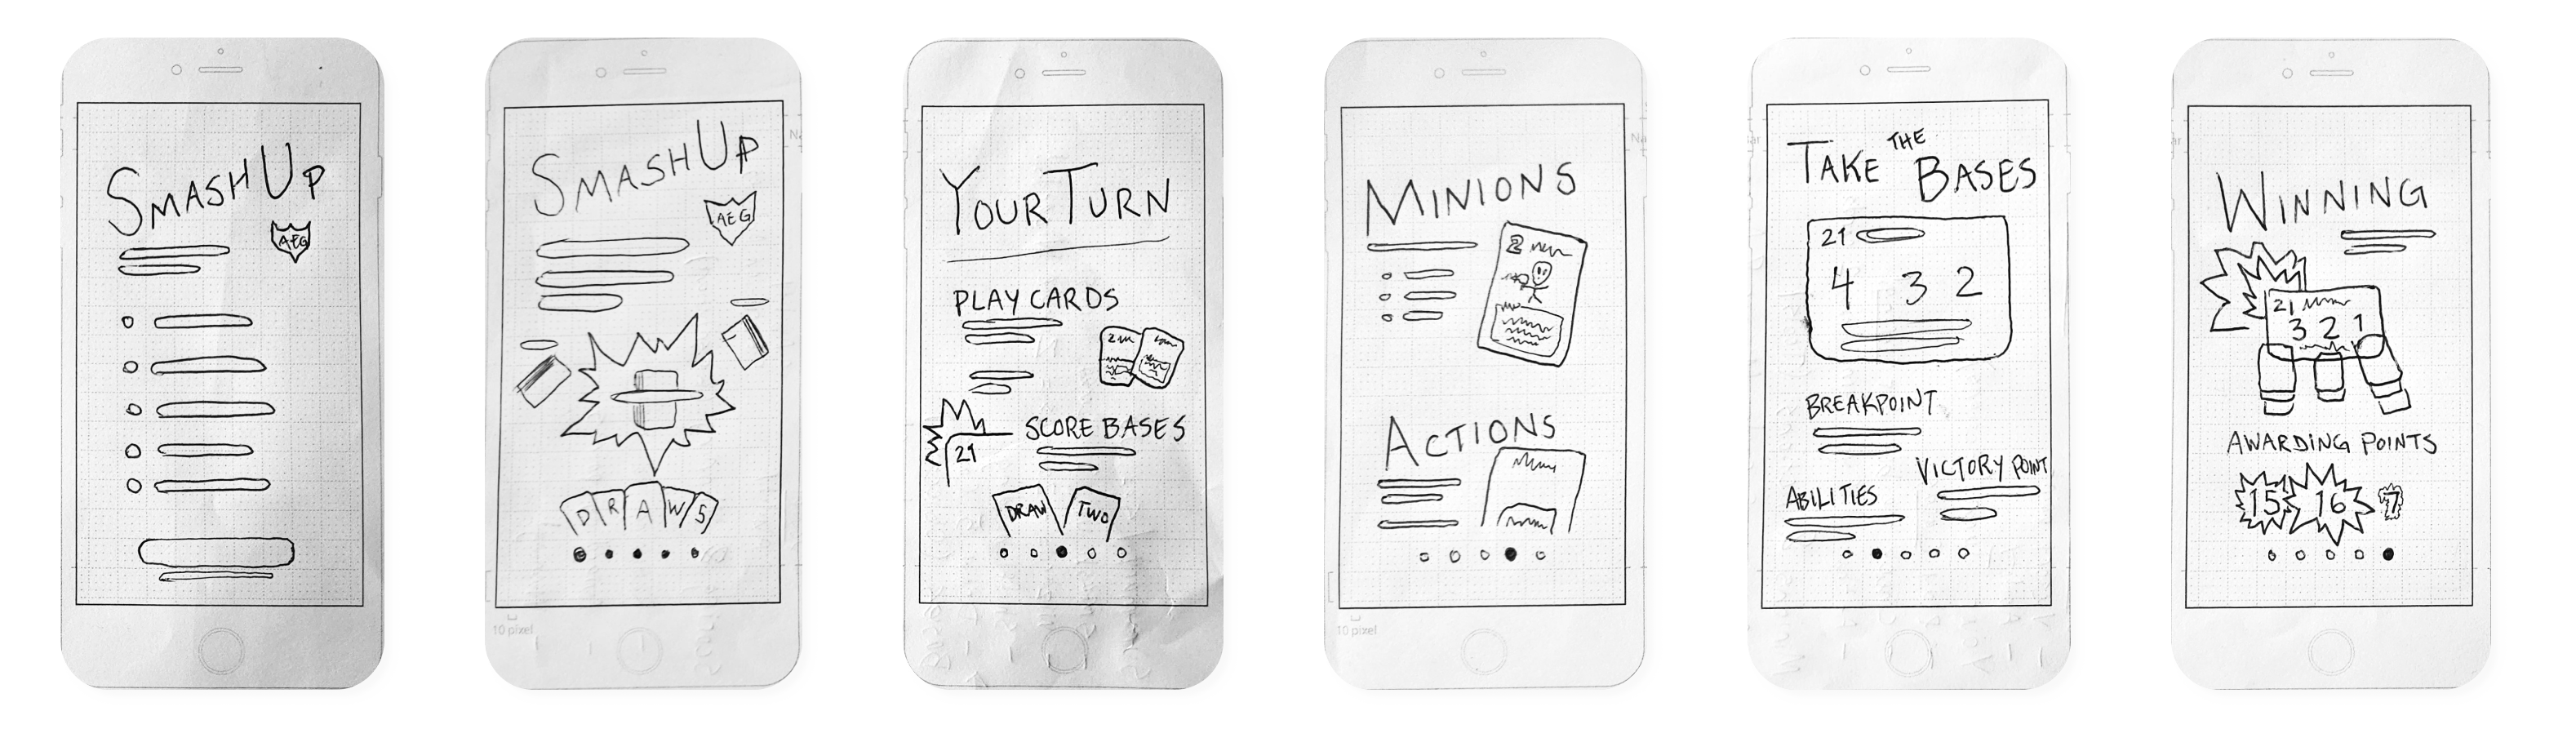 SMASH UP
AEG
SMASH UP
AEG
DRAW 5
10 pixel
YOUR TURN
PLAY CARDS
2
SCORE BASES
21
DRAW TWO
MINIONS
2
ACTIONS
10 pixel
TAKE THE BASES
21
4 3 2
BREAKPOINT
VICTORY POINT
ABILITIES
WINNING
21
3 2 1
AWARDING POINTS
15 16 7